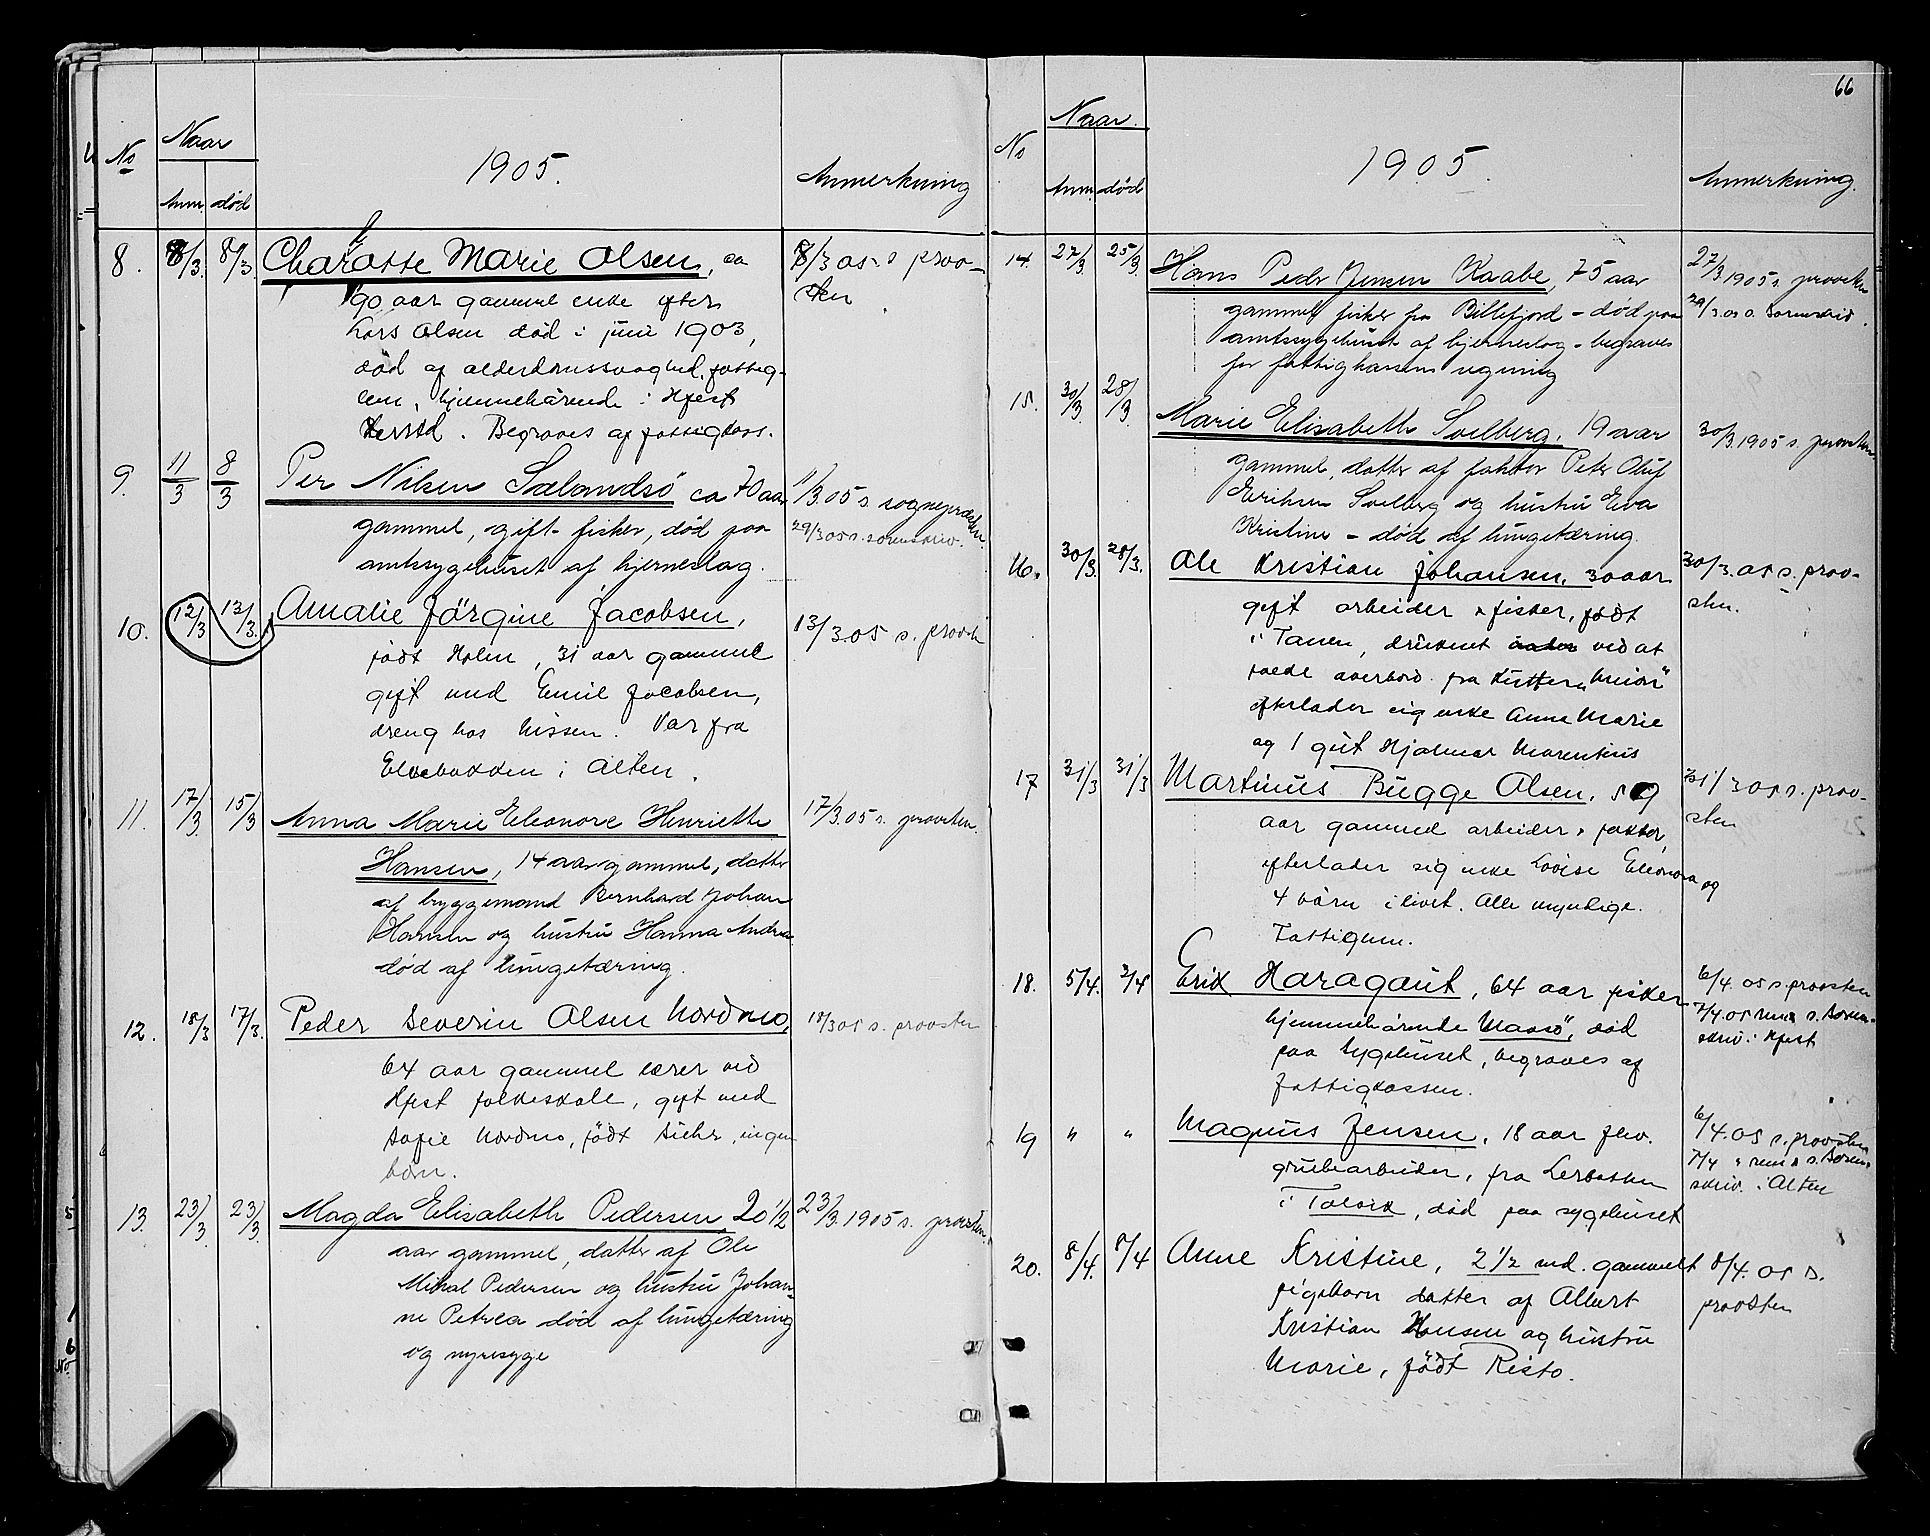 No
Naar
Anm. død
1905.
Anmerkning
8. 8/3. 8/3. Charlotte Marie Olsen, ca
8/3 05 s provsten
90 aar gammel enke efter
Lars Olsen død i juni 1903,
død af alderdomssvaghed, fattig-
lem, hjemmehørende i Hfest
Herred. Begraves af fattigkass.
9. 11/3 8/3 Per Nilsen Salandsö ca 70 aar
11/3.05 s. sognepresten.
29/3 05 s. sorenskriv.
gammel, gift fisker, død paa
amtssygehuset af hjerneslag.
10. 12/3 13/3. Amalie Jörgine Jacobsen,
13/3.05 s. provst
født Holm, 31 aar gammel
gift med Emil Jacobsen,
dreng hos Nissen. Var fra
Elvebakken i Alten.
11. 17/3. 15/3 Anna Marie Eleonore Henriette
17/3.05 s. provsten.
Hansen, 14 aar gammel, datter
af bryggemand Bernhard Johan
Hansen og hustru Hanna Andrea
død af lungetæring.
12. 18/3 17/3. Peder Severin Olsen Nordmo,
18/3 05 s. provsten
64 aar gammel lærer ved
Hfest folkeskole, gift med
Sofie Nordmo, født, ingen
børn.
13. 23/3. 23/3. Magda Elisabeth Pedersen 20 1/2
23/3. 1905 s. provsten.
aar gammel, datter af Ole
Mikal Pedersen og hustru Johan-
ne Petrea død af lungetæring
og nyresyge
66
No
Naar.
Anm. død
1905.
Anmerkning.
14. 27/3. 25/3. Hans Peder Jensen Kaabe, 75 aar
27/3.1905 s. provsten
29/3.05 s. Sorenskriv.
gammel fisker fra Billefjord - død paa
amtssygehuset af hjerneslag - begraves
for fattigkassens regning
15. 30/3 28/3. Marie Elisabeth Solberg. 19 aar
30/3.1905 s. provsten
gammel, datter af faktor Peter Oluf
Eriksen Solberg og hustru Eva
Kristine - død af lungetæring.
16. 30/3. 28/3. Ole Kristian Johansen, 30 aar
30/3.05 s. prov-
sten.
gift arbeider & fisker, født
i Tanen, druknet ved at
falde overbord fra Kutter "Union"
efterlader sig enke Anne Marie
og 1 gut Hjalmar Marentius
17 31/3 31/3 Martinus Bugge Olsen. 59
31/3 05 s. prov-
sten
aar gammel arbeider & fakter,
efterlader sig enke Lovise Eleonora og
4 børn i livet. Alle myndige.
Fattiglem.
18. 5/4. 3/4 Erik Haragaut, 64 aar fisker
6/4. 05 s. provsten
7/4.05 s. Soren-
skriv. i Hfest
hjemmehörende Maasö, død
paa sygehuset, begraves af
fattigkassen.
19 " " Magnus Jensen, 18 aar
6/4.05 s. provsten
7/4 s. Soren-
skriv. i Alten
grubearbeider, fra Lerbotten
i Talvik, død paa sygehuset
20. 8/4. 8/4 Anne Kristine, 2 1/2 md. gammelt
8/4. 05 s.
provsten
pigebarn datter af Albert
Kristian Hansen og hustru
Marie, født Risto.